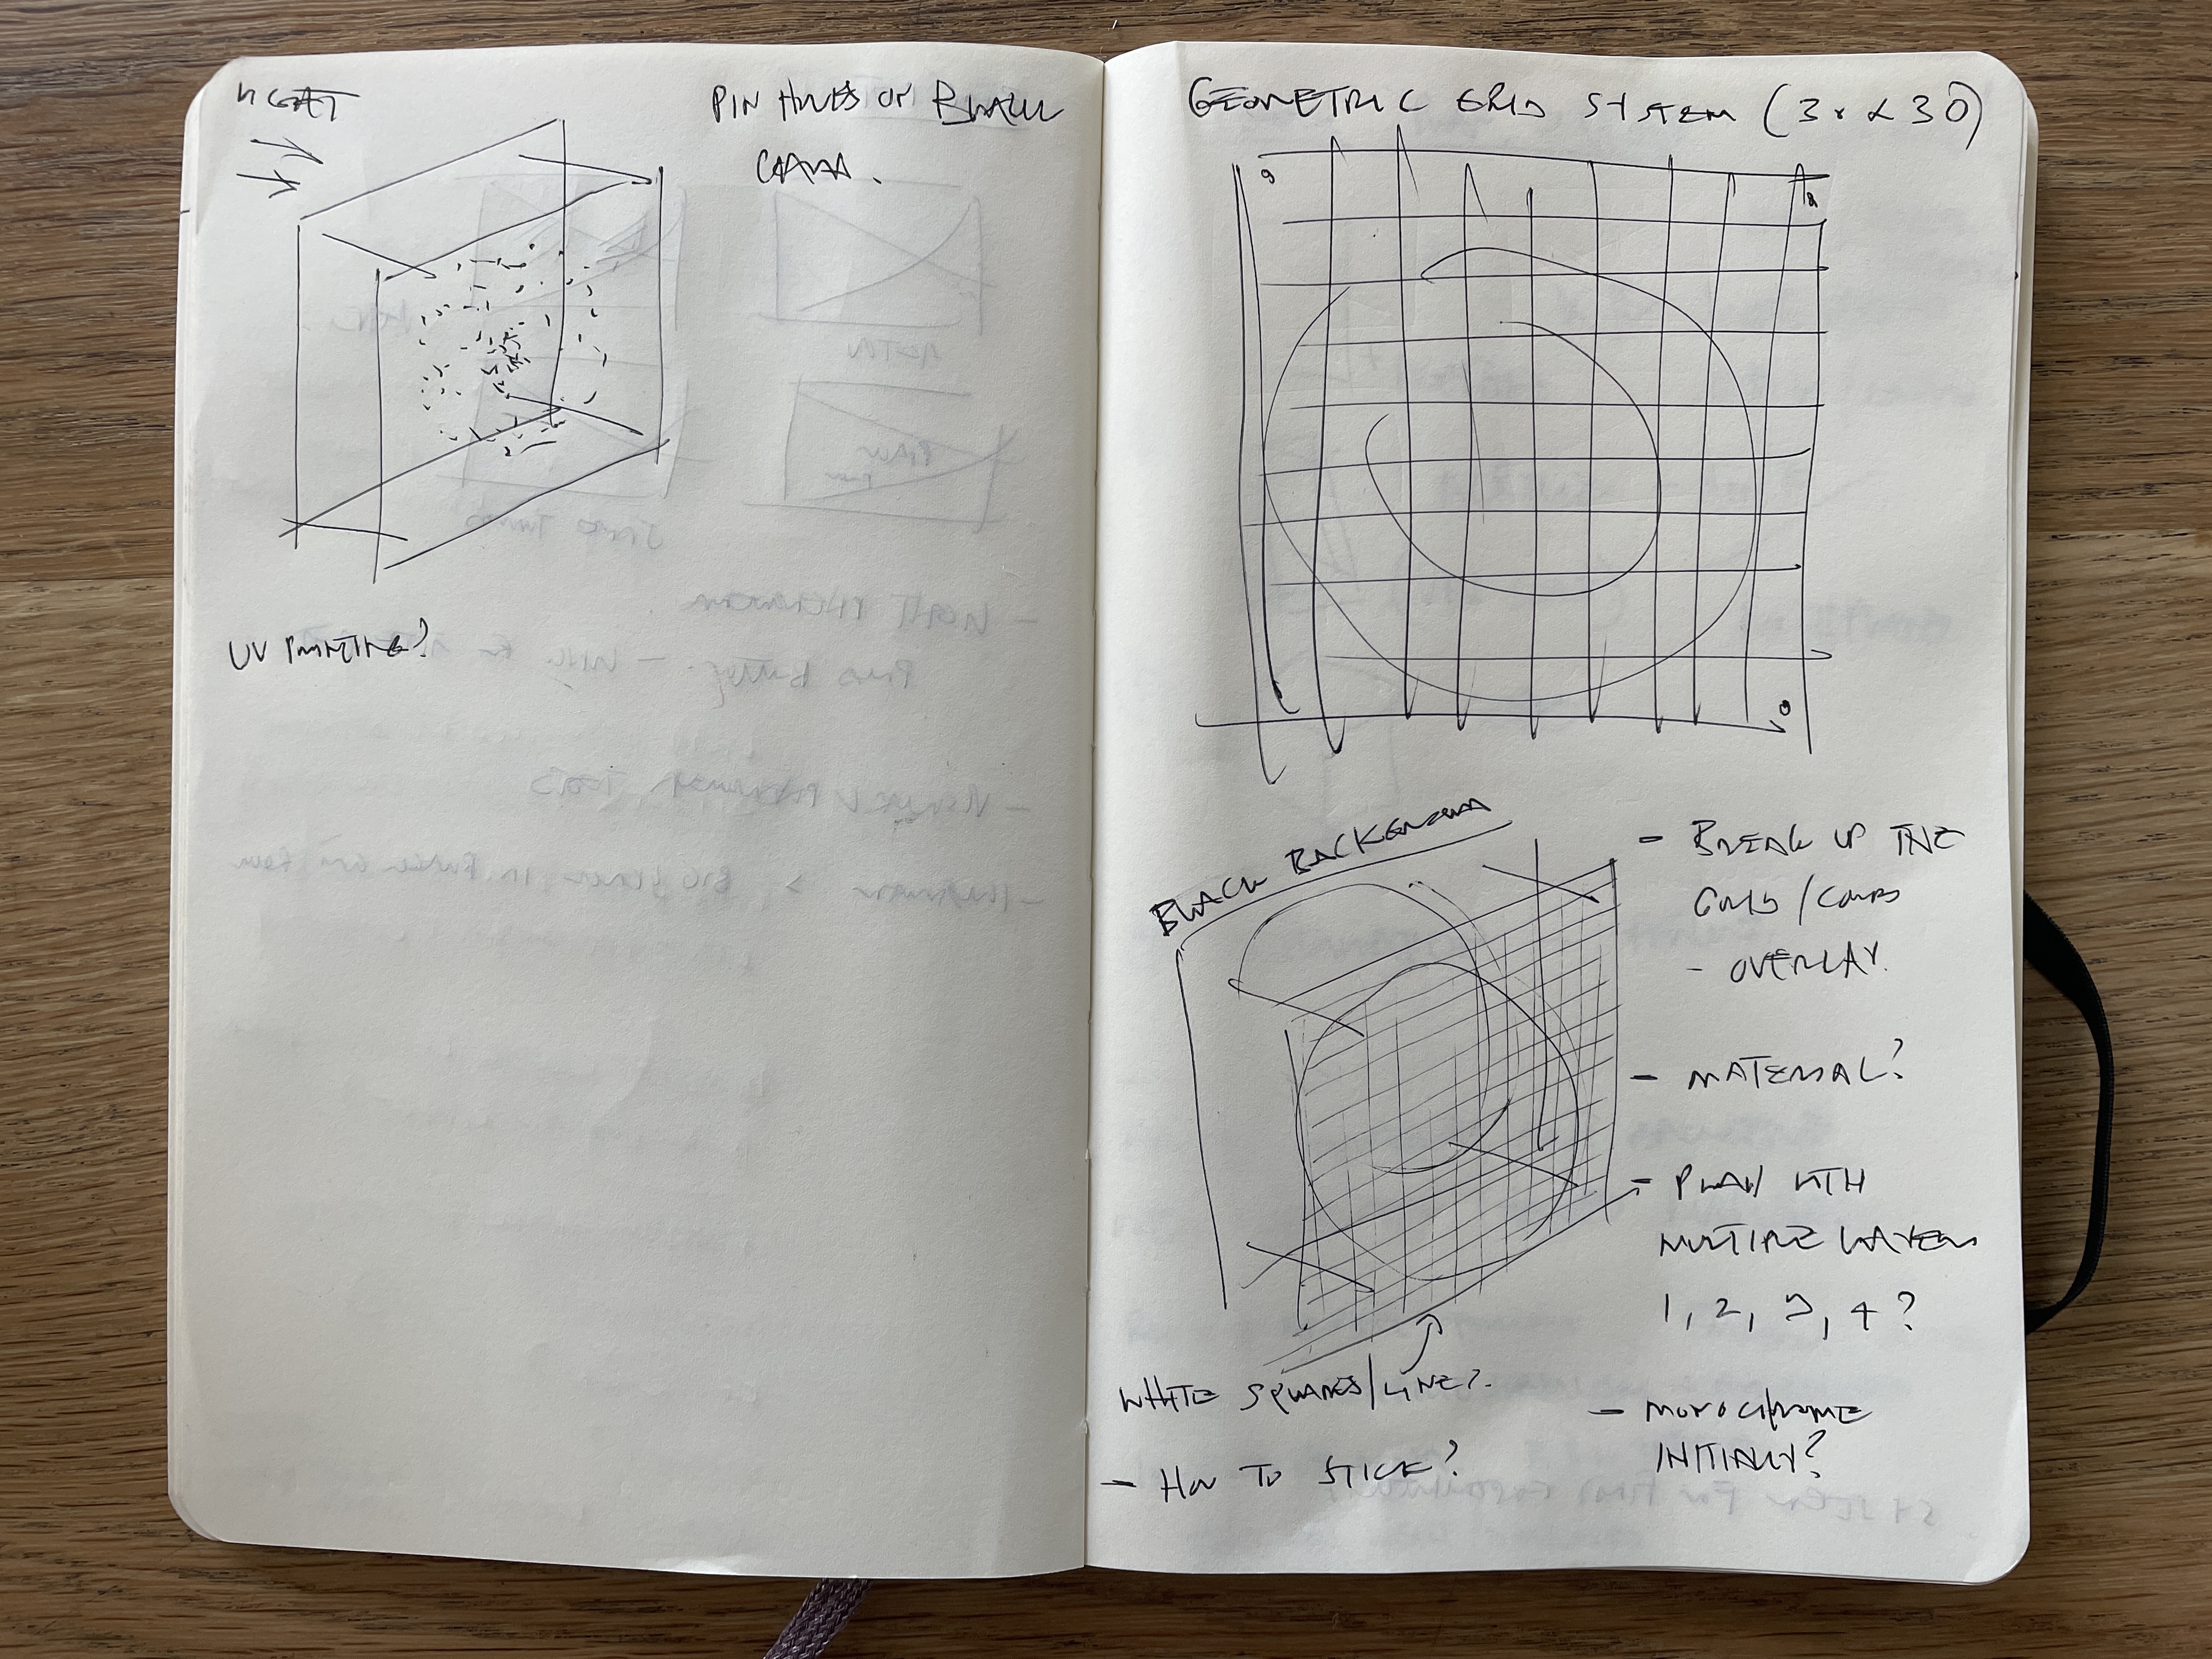 LIGHT
PIN HOLES OF BLACK
UV PRINTING?
GEOMETRIC GRID SYSTEM (3 x 30)
BLACK BACKGROUND
- BREAK UP THE
GRID /
- OVERLAY.
- MATERIAL?
- PLAY WITH
MULTIPLE LAYERS
1, 2, 3, 4 ?
WHITE SQUARES/LINE?
- MONOCHROME
INITIALLY?
- HOW TO STICK?